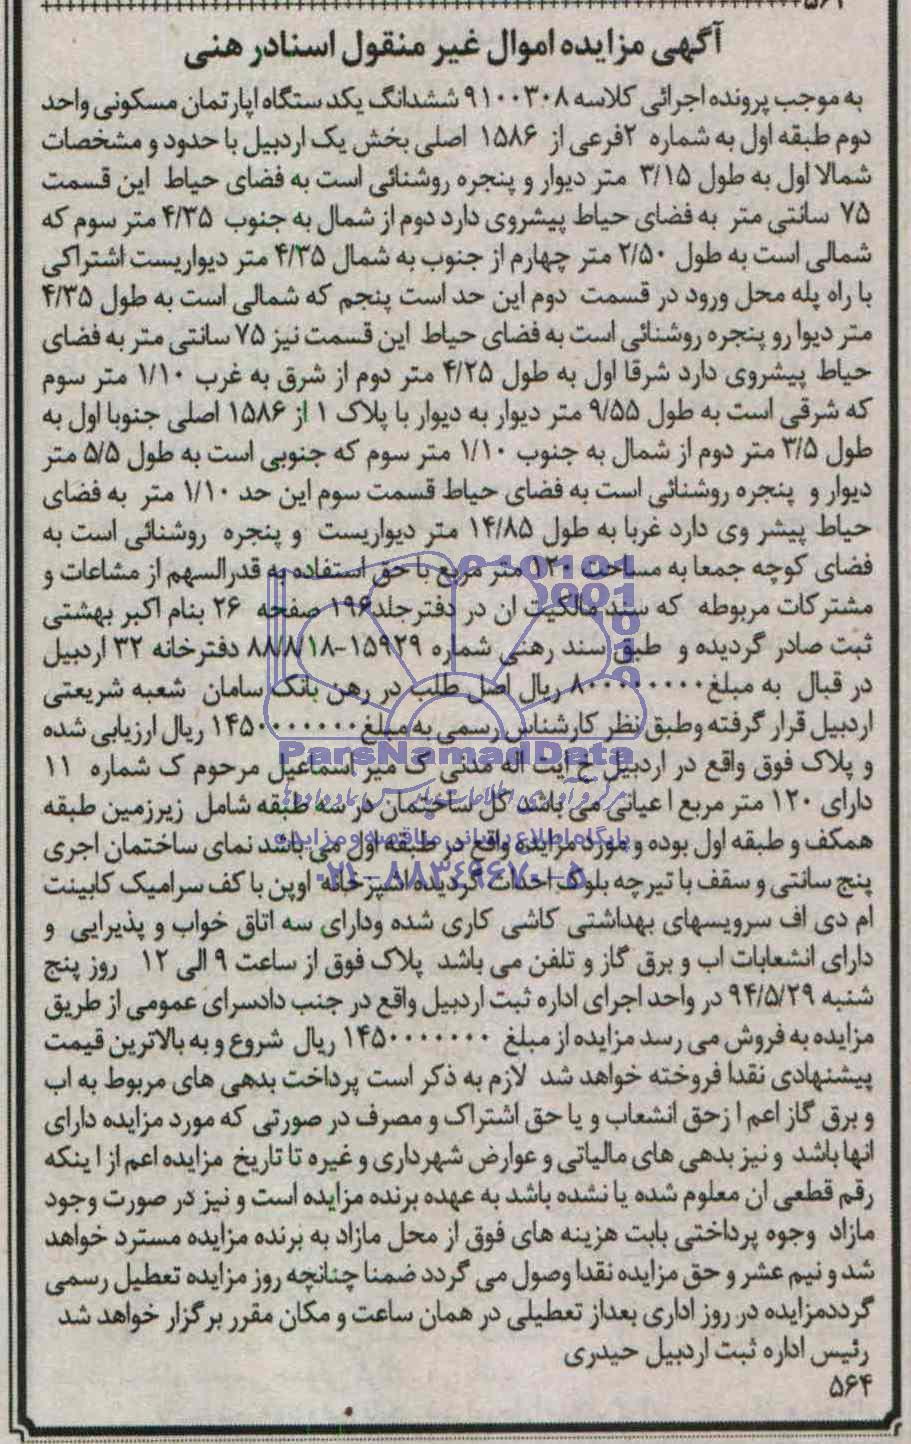 ۵۶۲
آگهی مزایده اموال غیر منقول اسنادر هنی
به موجب پرونده اجرائی کلاسه ۹۱۰۰۳۰۸ ششدانگ یکدستگاه اپارتمان مسکونی واحد
دوم طبقه اول به شماره ۲فرعی از ۱۵۸۶ اصلی بخش یک اردبیل با حدود و مشخصات
شمالا اول به طول ۳/۱۵ متر دیوار و پنجره روشنائی است به فضای حیاط این قسمت
۷۵ سانتی متر به فضای حیاط پیشروی دارد دوم از شمال به جنوب ۴/۳۵ متر سوم که
شمالی است به طول ۲/۵۰ متر چهارم از جنوب به شمال ۴/۳۵ متر دیواریست اشتراکی
با راه پله محل ورود در قسمت دوم این حد است پنجم که شمالی است به طول ۴/۳۵
متر دیوا رو پنجره روشنائی است به فضای حیاط این قسمت نیز ۷۵ سانتی متر به فضای
حیاط پیشروی دارد شرقا اول به طول ۴/۲۵ متر دوم از شرق به غرب ۱/۱۰ متر سوم
که شرقی است به طول ۹/۵۵ متر دیوار به دیوار با پلاک ۱ از ۱۵۸۶ اصلی جنوبا اول به
طول ۳/۵ متر دوم از شمال به جنوب ۱/۱۰ متر سوم که جنوبی است به طول ۵/۵ متر
دیوار و پنجره روشنائی است به فضای حیاط قسمت سوم این حد ۱/۱۰ متر به فضای
حیاط پیشر وی دارد غربا به طول ۱۴/۸۵ متر دیواریست و پنجره روشنائی است به
فضای کوچه جمعا به مساحت ۱۲۰ متر مربع با حق استفاده به قدرالسهم از مشاعات و
مشترکات مربوطه که سند مالکیت ان در دفترجلد۱۹۶ صفحه ۲۶ بنام اکبر بهشتی
ثبت صادر گردیده و طبق سند رهنی شماره ۱۵۹۲۹-۸۸/۸/۱۸ دفترخانه ۳۲ اردبیل
در قبال به مبلغ۸۰۰۰۰۰۰۰۰ ریال اصل طلب در رهن بانک سامان شعبه شریعتی
اردبیل قرار گرفته وطبق نظر کارشناس رسمی به مبلغ۱۴۵۰۰۰۰۰۰۰ ریال ارزیابی شده
و پلاک فوق واقع در اردبیل خ ایت اله مدنی ک میر اسماعیل مرحوم ک شماره ۱۱
دارای ۱۲۰ متر مربع ا عیانی می باشد کل ساختمان در سه طبقه شامل زیرزمین طبقه
همکف و طبقه اول بوده و مورد مزایده واقع در طبقه اول می باشد نمای ساختمان اجری
پنج سانتی و سقف با تیرچه بلوک احداث گردیده اشپزخانه اوپن با کف سرامیک کابینت
ام دی اف سرویسهای بهداشتی کاشی کاری شده ودارای سه اتاق خواب و پذیرایی و
دارای انشعابات اب و برق گاز و تلفن می باشد پلاک فوق از ساعت ۹ الی ۱۲ روز پنج
شنبه ۹۴/۵/۲۹ در واحد اجرای اداره ثبت اردبیل واقع در جنب دادسرای عمومی از طریق
مزایده به فروش می رسد مزایده از مبلغ ۱۴۵۰۰۰۰۰۰۰ ریال شروع و به بالاترین قیمت
پیشنهادی نقدا فروخته خواهد شد لازم به ذکر است پرداخت بدهی های مربوط به اب
و برق گاز اعم ا زحق انشعاب و یا حق اشتراک و مصرف در صورتی که مورد مزایده دارای
انها باشد و نیز بدهی های مالیاتی و عوارض شهرداری و غیره تا تاریخ مزایده اعم از ا ینکه
رقم قطعی ان معلوم شده یا نشده باشد به عهده برنده مزایده است و نیز در صورت وجود
مازاد وجوه پرداختی بابت هزینه های فوق از محل مازاد به برنده مزایده مسترد خواهد
شد و نیم عشر و حق مزایده نقدا وصول می گردد ضمنا چنانچه روز مزایده تعطیل رسمی
گرددمزایده در روز اداری بعداز تعطیلی در همان ساعت و مکان مقرر برگزار خواهد شد
رئیس اداره ثبت اردبیل حیدری
۵۶۴
ParsNamadData
پایگاه اطلاع رسانی مناقصه و مزایده
۰۲۱-۸۸۳۴۹۶۷۰-۵